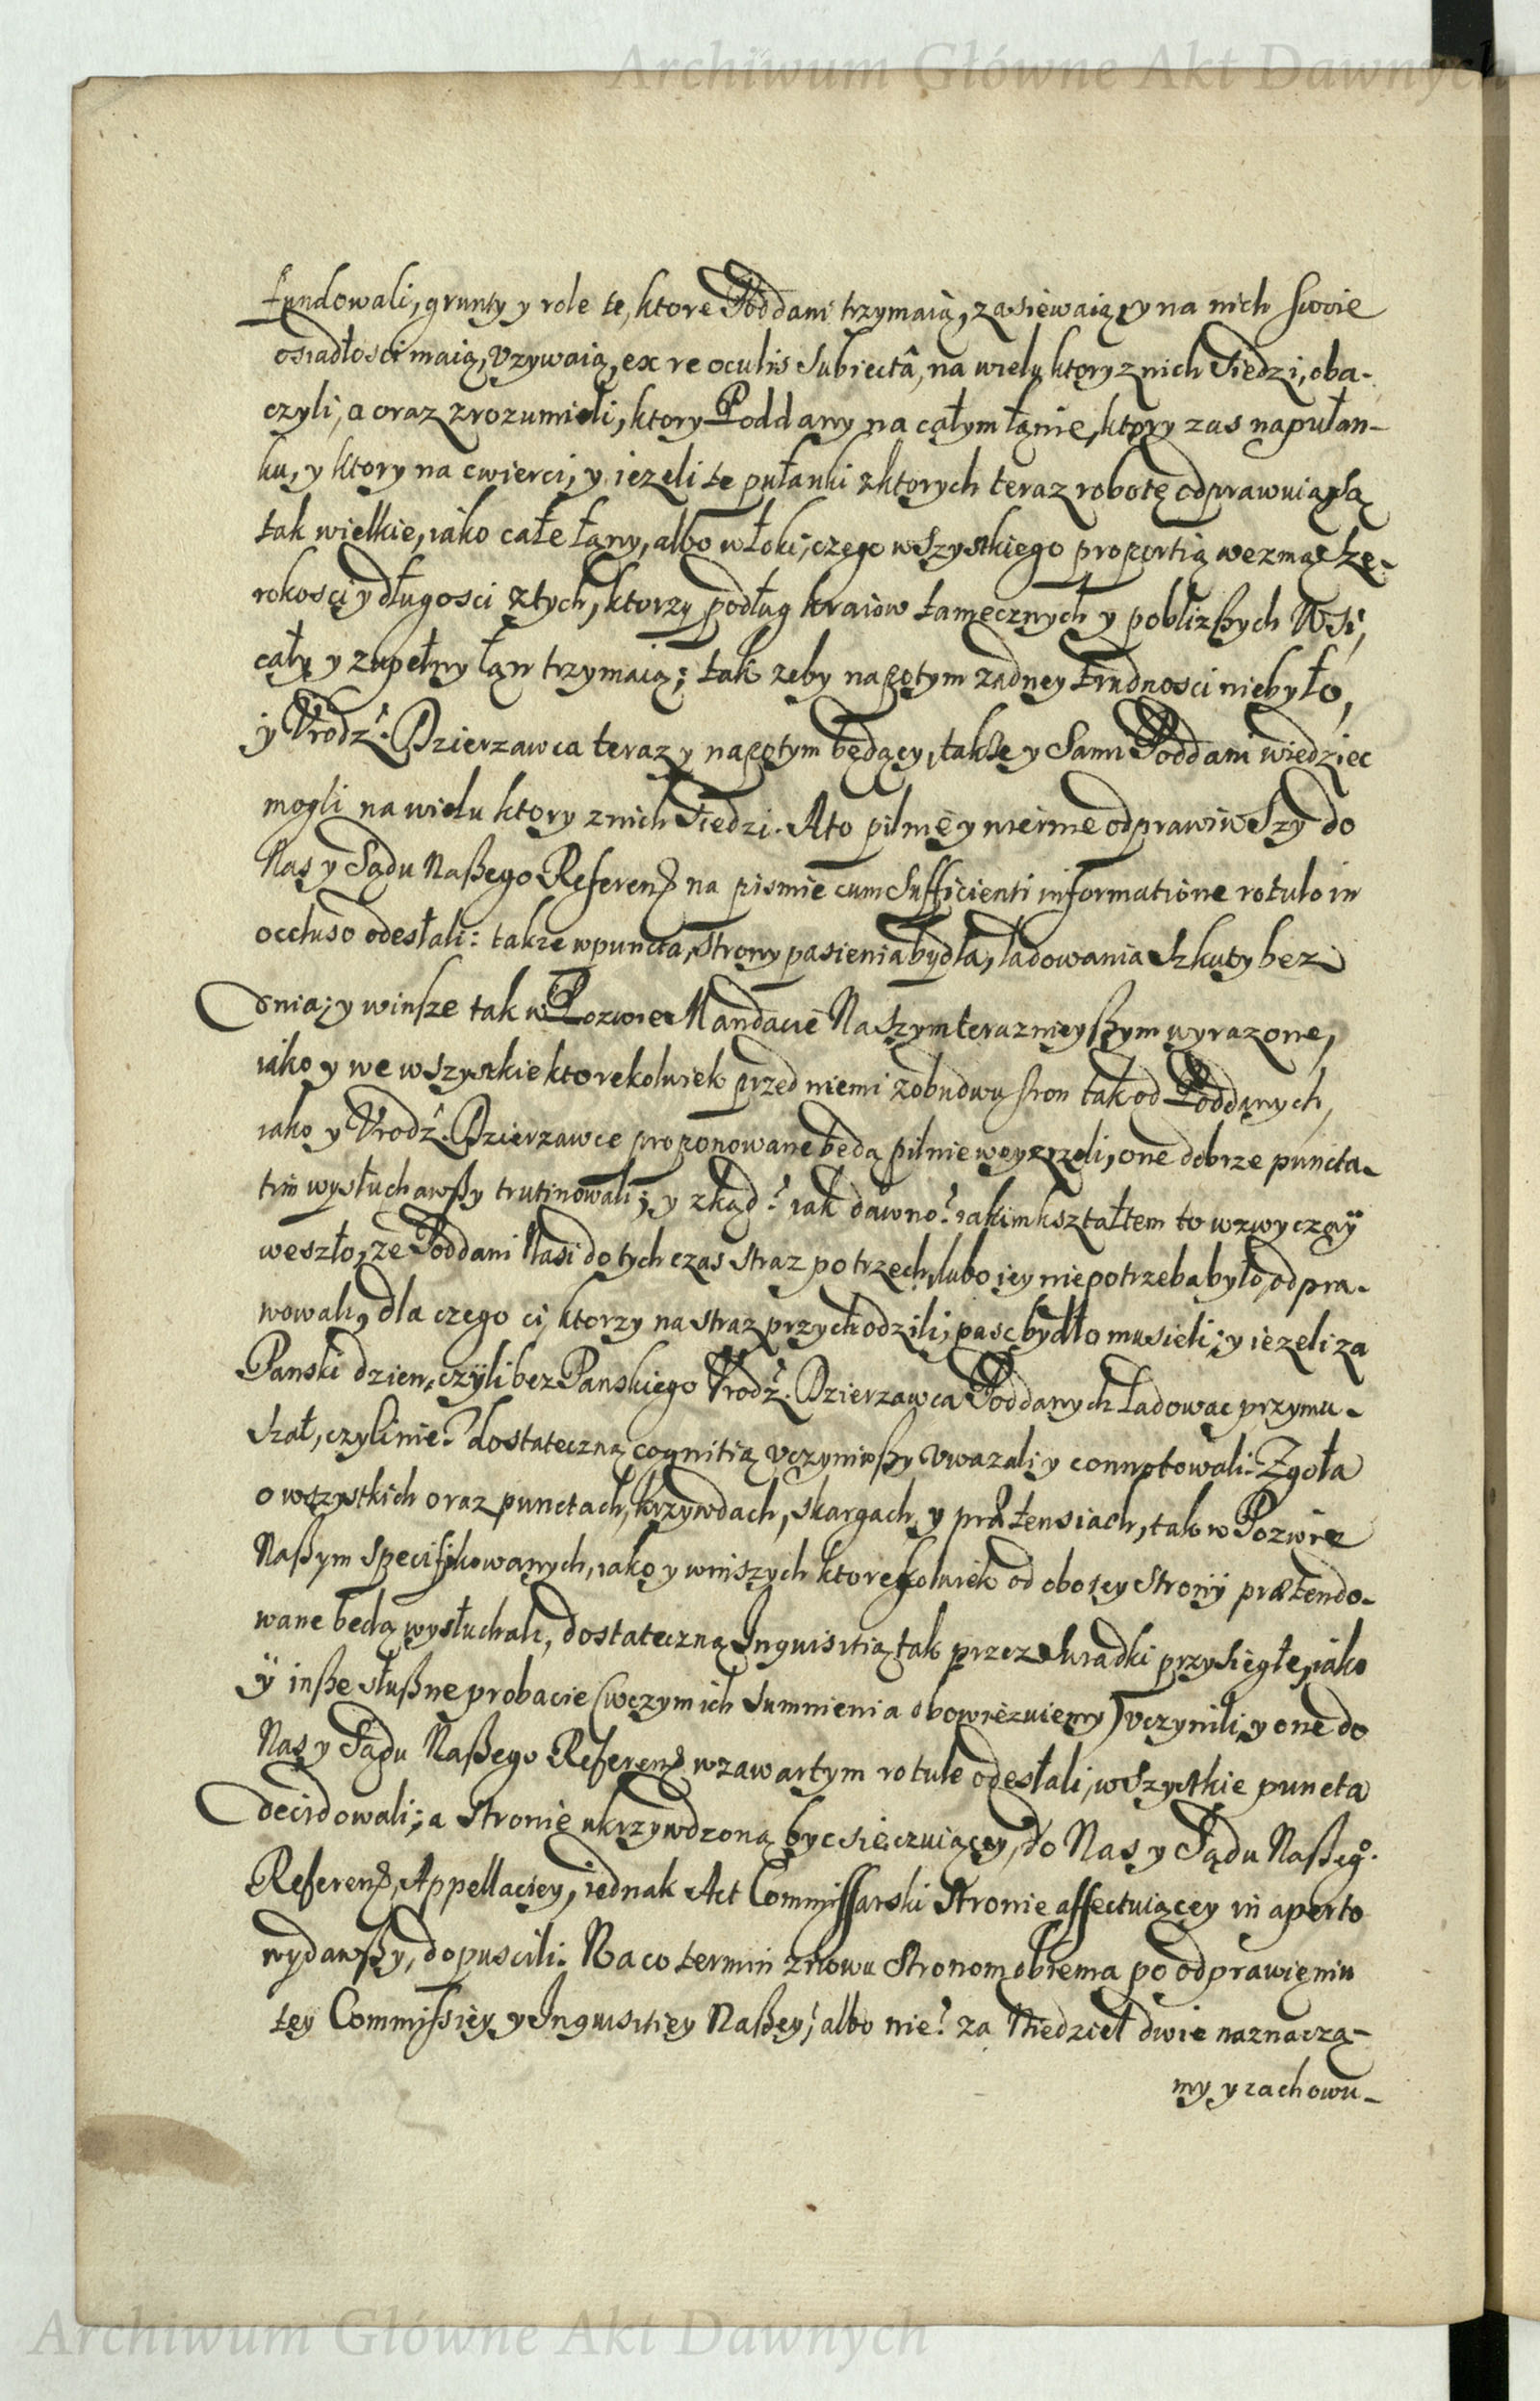 Archiwum Główne Akt Dawnych
fundowali, grunty y role te, ktore Poddani trzymaią, zasiewaią, y na nich swoie
osiadłosci maią, vzywaią, ex re oculis subiectâ, na wielu ktory z nich siedzi, oba-
czyli, a oraz zrozumieli, ktory Poddany na całym łanie, ktory zas na pułan-
ku, y ktory na cwierci, y iezeli te pułanki z ktorych teraz robotę odprawuią są
tak wielkie, iako całe łany, albo włoki, czego wszystkiego proportią wezmą sze-
rokosci y długosci z tych, ktorzy podług kraiow tamecznych y pobliższych Wsi,
cały y zupełny łan trzymaią; tak zeby na potym zadney trudnosci niebyło,
y Vrodz. Dzierzawca teraz y napotym będący, takze y sami Poddani wiedziec
mogli na wielu ktory z nich siedzi. A to pilnie y wiernie odprawiwszy do
Nas y Sądu Naszego Referend. na pismie cum sufficienti informatione rotulo in
occluso odesłali: takze w puncta, strony pasienia bydła, ładowania szkuty bez
dnia, y w insze tak w Pozwie Mandacie Naszym teraznieyszym wyrazone,
iako y we wszystkie ktorekolwiek przed niemi z obudwu stron tak od Poddanych,
iako y Vrodz. Dzierzawce proponowane będą pilnie weyrzeli, one dobrze puncta-
tim wysłuchawszy trutinowali; y zkąd? iak dawno? iakim kształtem to w zwyczaÿ
weszło, ze Poddani Nasi do tych czas straz po trzech, lubo iey nie potrzeba było, odpra-
wowali, dla czego ci, ktorzy na straz przychodzili, pasc bydło musieli; y iezeli za
Panski dzien, czÿli bez Panskiego Vrodz. Dzierzawca Poddanych ładowac przymu-
szał, czyli nie? dostateczną cognitią vczyniwszy vwazali y connotowali. Zgoła
o wszystkich oraz punctach, krzywdach, skargach, y prætensiach, tak w Pozwie
Naszym specifikowanych, iako y w inszych ktorekolwiek od oboiey stronÿ prætendo-
wane będą wysłuchali, dostateczną Inquisitią tak przez swiadki przysięgłe, iako
ÿ insze słuszne probacie (w czym ich sumnienia obowięzuiemy) vczynili, y one do
Nas y Sądu Naszego Referend. w zawartym rotule odesłali, wszystkie puncta
decidowali; a stronie ukrzywdzoną byc się czuiącey, do Nas y Sądu Naszeg°.
Referend. Appellaciey, iednak Act Commissarski stronie affectuiącey in aperto
wydawszy, dopuscili. Na co termin znowu stronom obiema po odprawieniu
tey Commissiey y Inquisitiey Naszey, albo nie? za Niedziel dwie naznacza-
my y zachowu-
Archiwum Główne Akt Dawnych